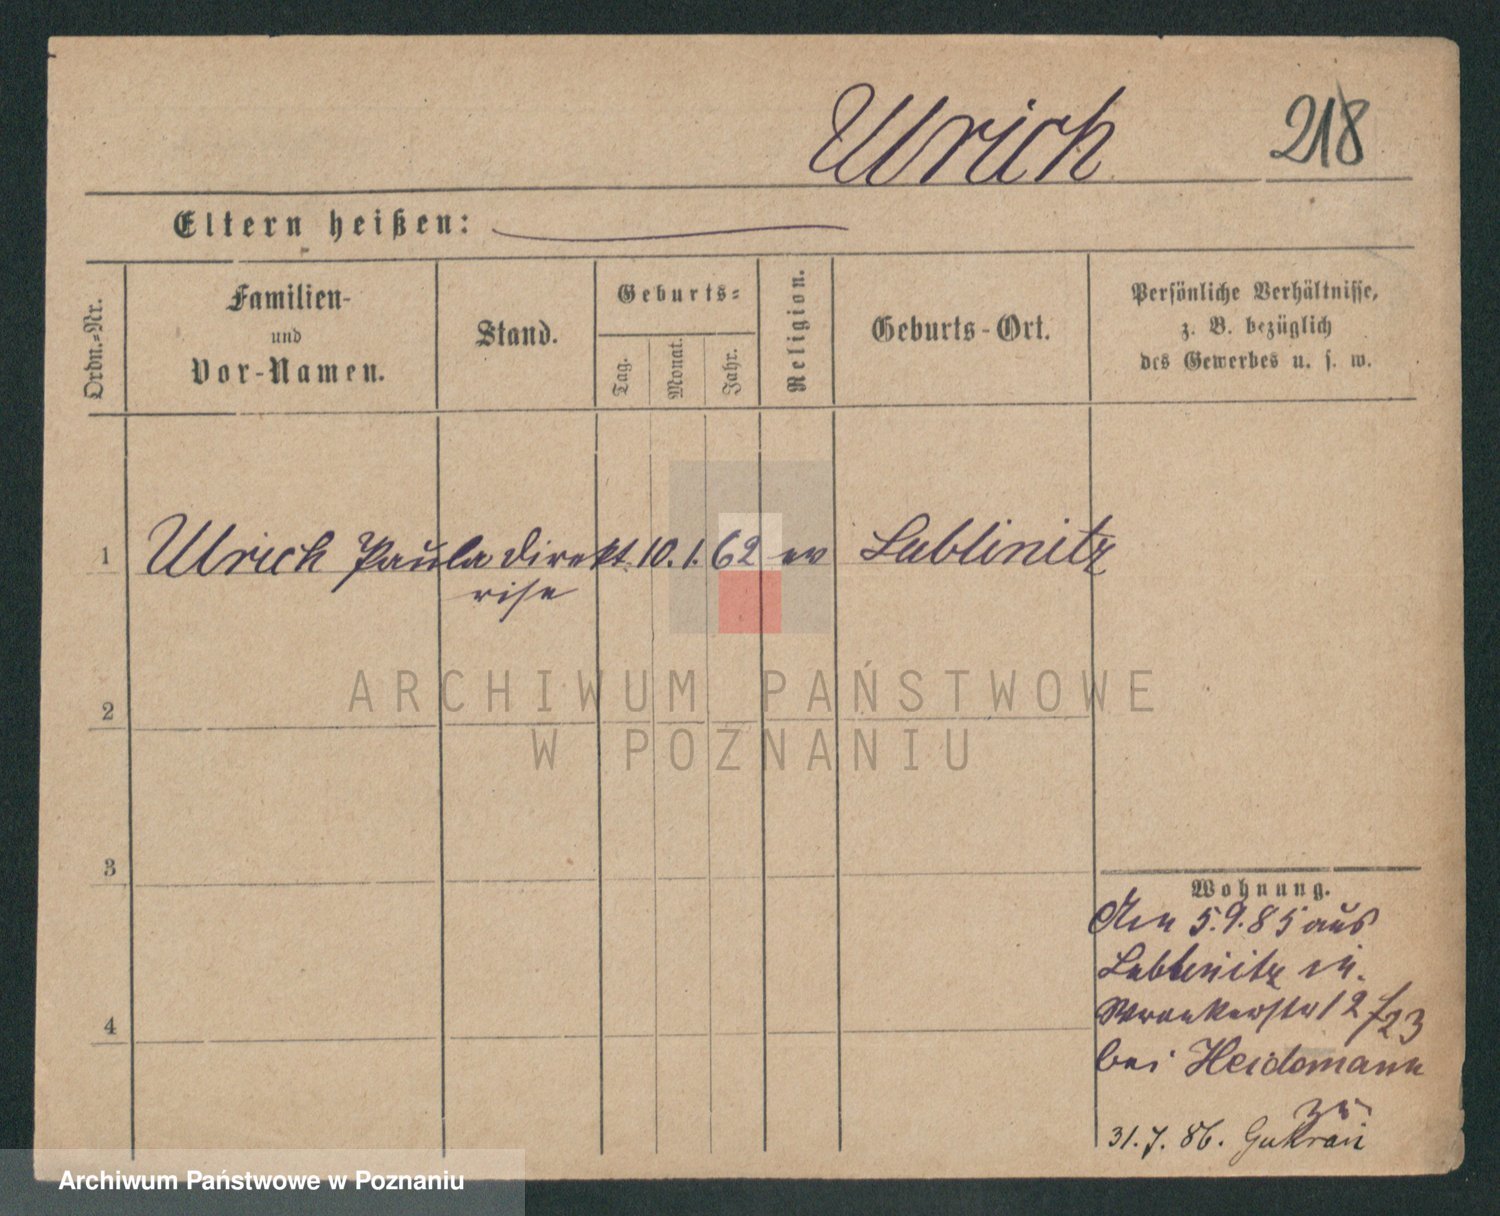 Ulrich 218
Eltern heißen:
Ordn.-Nr.
Familien-
und
Vor-Namen.
Stand.
Geburts-
Tag.
Monat.
Jahr.
Religion.
Geburts-Ort.
Persönliche Verhältnisse,
z. B. bezüglich
des Gewerbes u. s. w.
1 Ulrich Paula Direkt 10. 1. 62 ev Lublinitz
rise
2
3
4
Wohnung.
Am 5.9.85 aus
Lublinitz in.
2/23
bei Heidemann
31.7.86.
ARCHIWUM PAŃSTWOWE
W POZNANIU
Archiwum Państwowe w Poznaniu